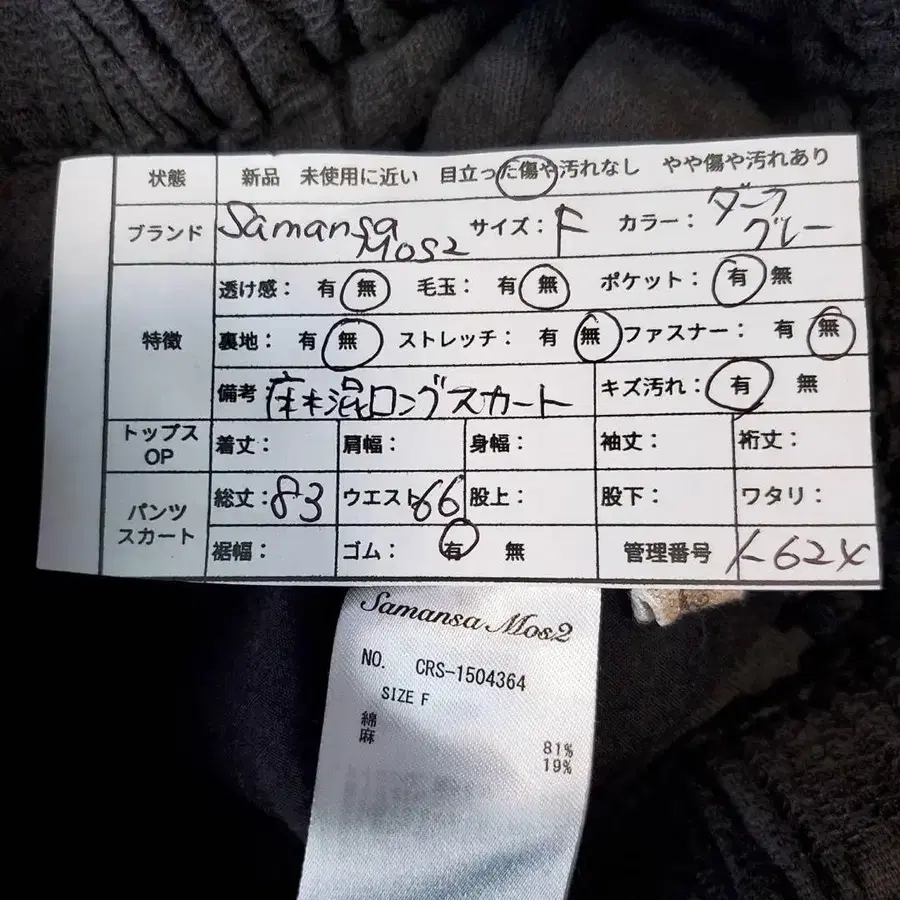 状態 新品 未使用に近い 目立った傷や汚れなし やや傷や汚れあり
ブランド Samansa Mos2 サイズ: F カラー: ダークグレー
特徴
透け感: 有 無 毛玉: 有 無 ポケット: 有 無
裏地: 有 無 ストレッチ: 有 無 ファスナー: 有 無
備考 麻混ロングスカート キズ汚れ: 有 無
トップス OP 着丈: 肩幅: 身幅: 袖丈: 裄丈:
パンツ スカート
総丈: 83 ウエスト 66 股上: 股下: ワタリ:
裾幅: ゴム: 有 無 管理番号
Samansa Mos2
NO. CRS-1504364
SIZE F
綿 81%
麻 19%